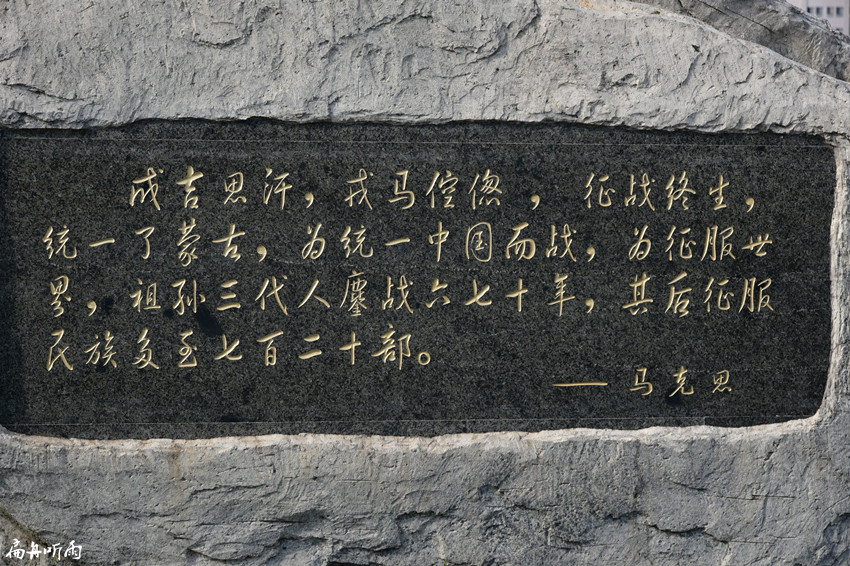 成吉思汗，戎马倥偬，征战终生，
统一了蒙古，为统一中国而战，为征服世
界，祖孙三代人鏖战六七十年，其后征服
民族多至七百二十部。
——马克思
扁舟听雨